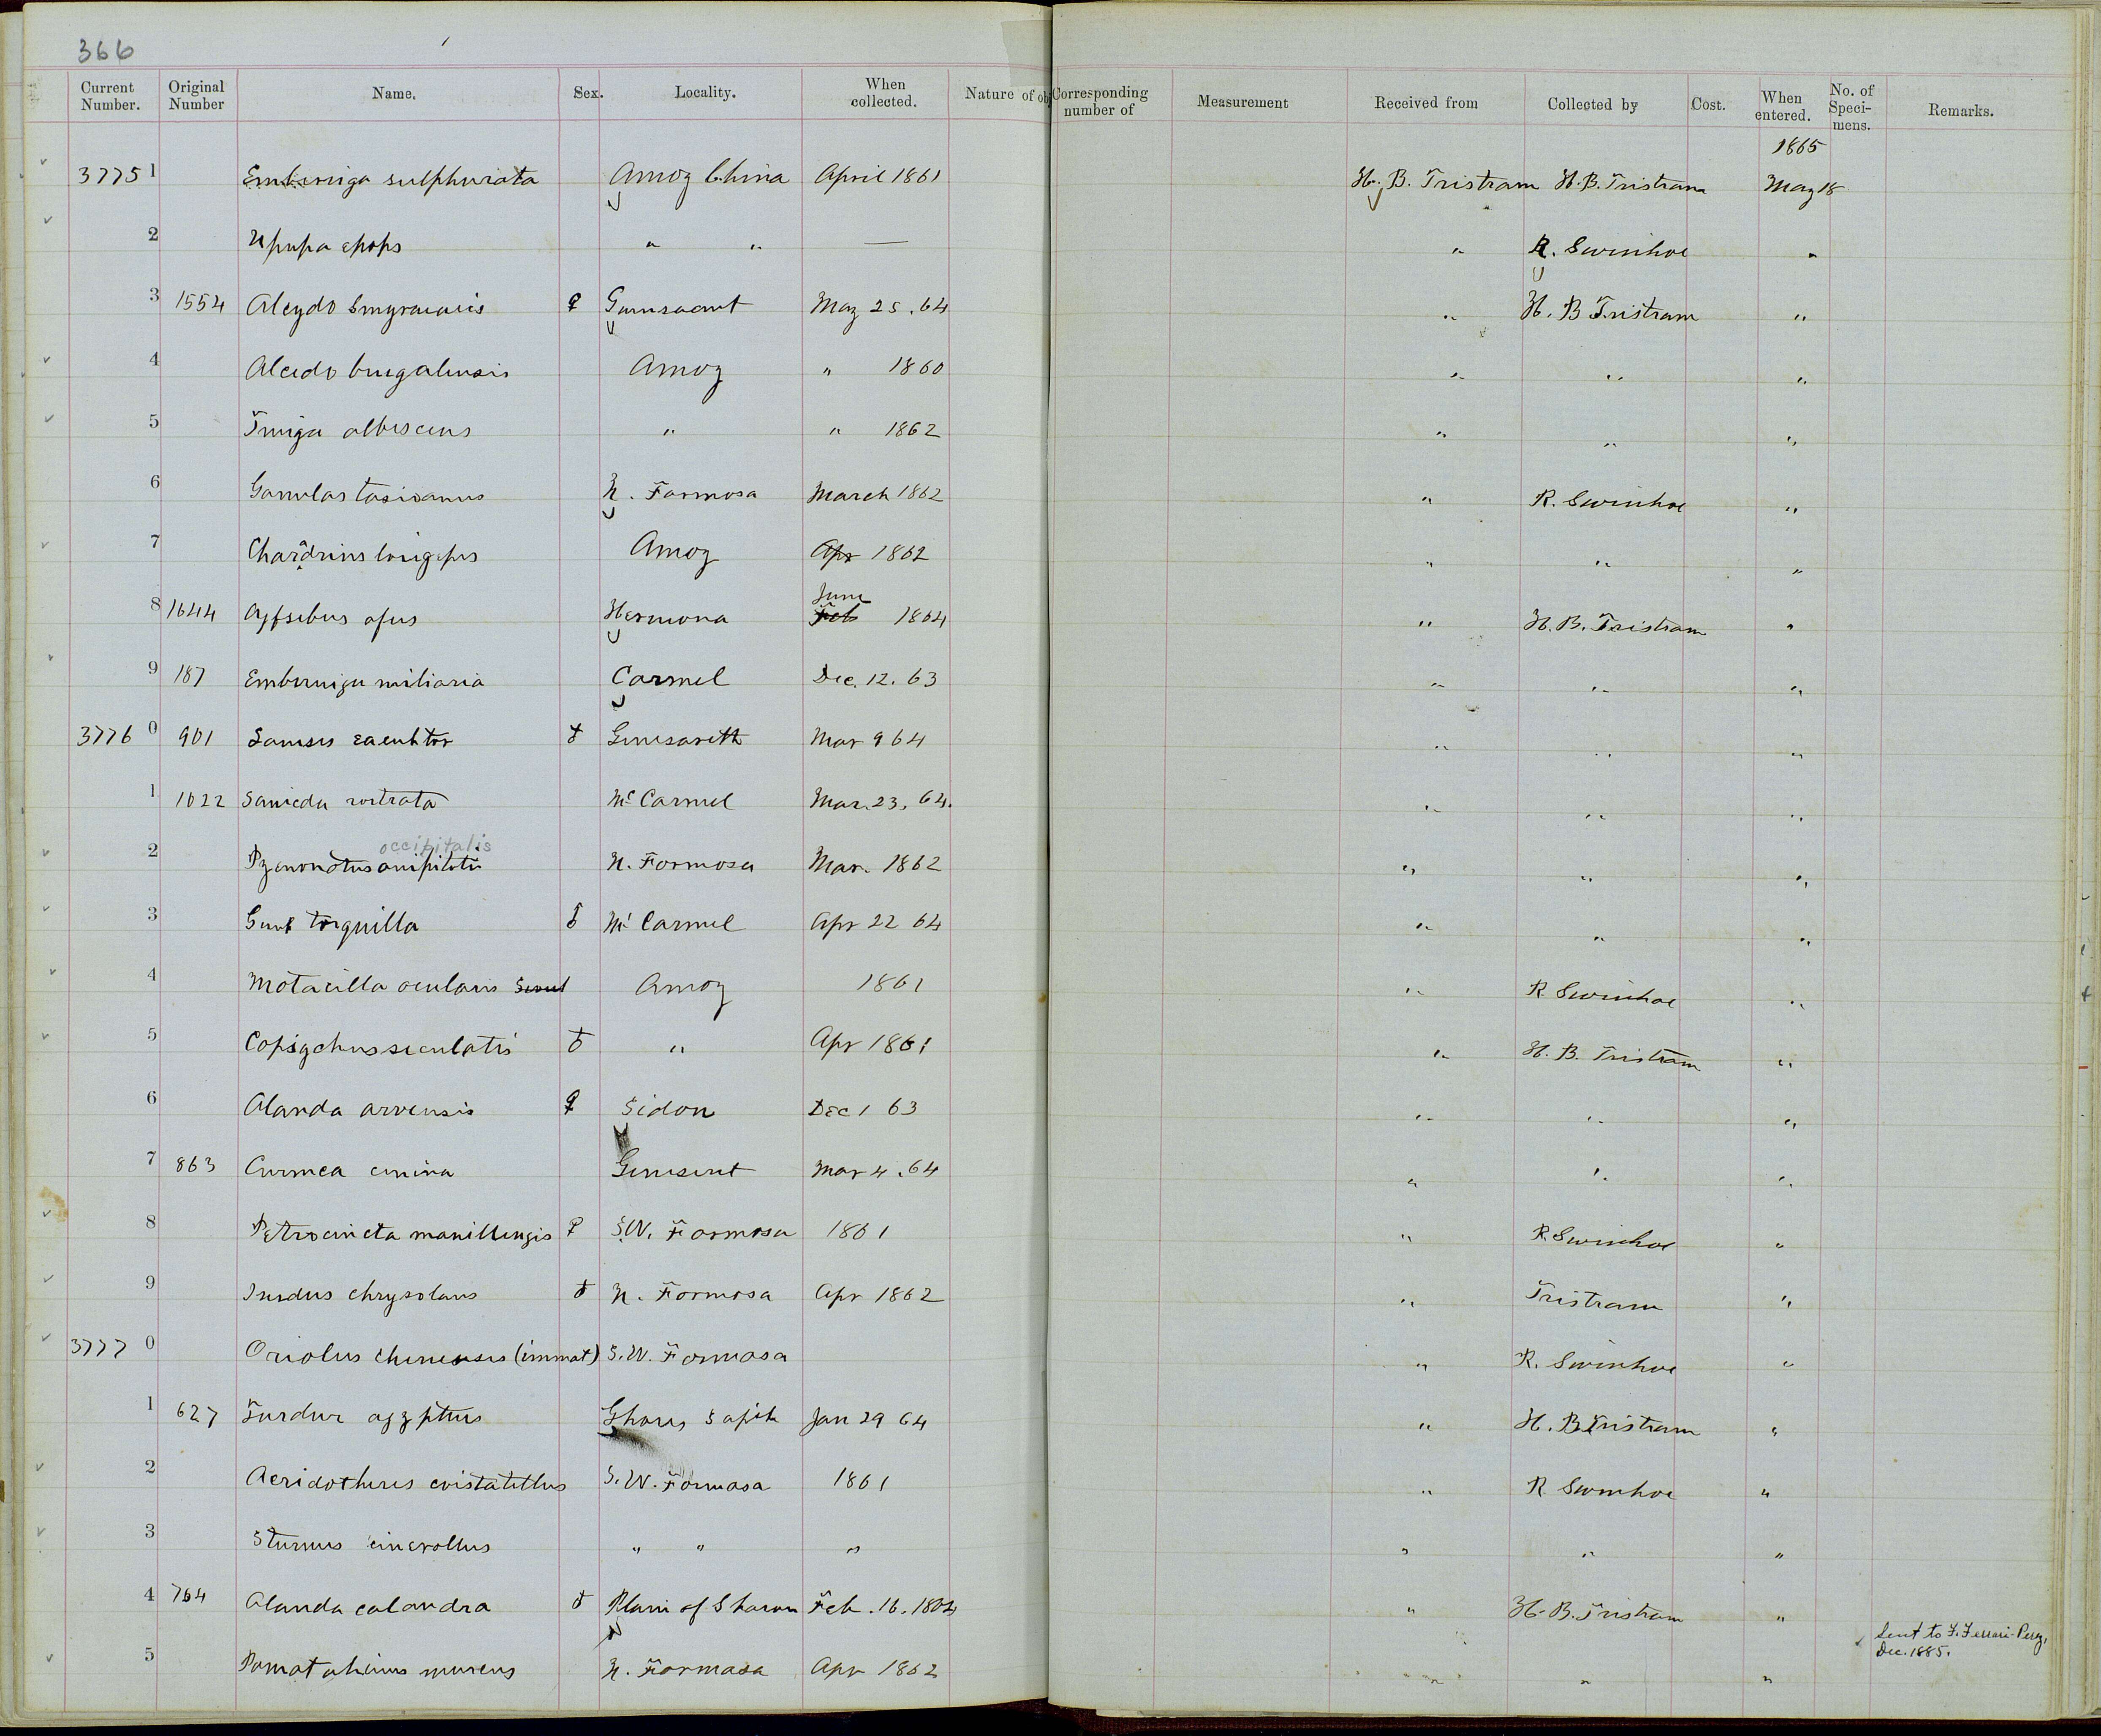 366
Current Number. Original Number Name. Sex. Locality. When collected. Nature of ob Corresponding number of Measurement Received from Collected by Cost. When entered. No. of Speci-mens. Remarks.
1865
37751 Emberiza sulphurata Amoy China April 1861 H. B. Tristram H. B. Tristram May 18
2 Upupa epops " " — " R. Swinhoe "
3 1554 Alcydo Smyrnensis ♀ May 25. 64 " H. B Tristram "
4 Alcedo bengalensis Amoy " 1860 " " "
5 Tringa albescens " " 1862 " " "
6 Garrulus N. Formosa March 1862 " R. Swinhoe "
7 Charadrius longipes Amoy Apr 1862 " " "
8 1644 apus Hermona June Feb 1864 " H. B. Tristram "
9 187 Emberiza miliaria Carmel Dec. 12. 63 " " "
37760 901 ♂ Genesareth Mar 9 64 " " "
1 1022 rostrata Mt Carmel Mar. 23, 64. " " "
occipitalis
2 Pycnonotus N. Formosa Mar. 1862 " " "
3 torquilla ♂ Mt Carmel Apr 22 64 " " "
4 Motacilla ocularis Amoy 1861 " R. Swinhoe "
5 Copsychus ♂ " Apr 1861 " H. B. Tristram "
6 Alanda arvensis ♀ Sidon Dec 1 63 " " "
7 863 Mar 4. 64 " " "
8 Petrocincta manillensis ♀ S.W. Formosa 1861 " R. Swinhoe "
9 Turdus chrysolaus ♂ N. Formosa Apr 1862 " Tristram "
37770 Oriolus chinensis (immat) S.W. Formosa " R. Swinhoe "
1 627 Jan 29 64 " H. B. Tristram "
2 Acridotheres cristatellus S.W. Formosa 1861 " R Swinhoe "
3 Sturnus " " " " " "
4 764 Alauda calandra ♂ Plain of Sharon Feb. 16. 1864 " H. B. Tristram "
Sent to F. Ferrari-Perez,
Dec. 1885.
5 N. Formosa Apr 1862 " " "